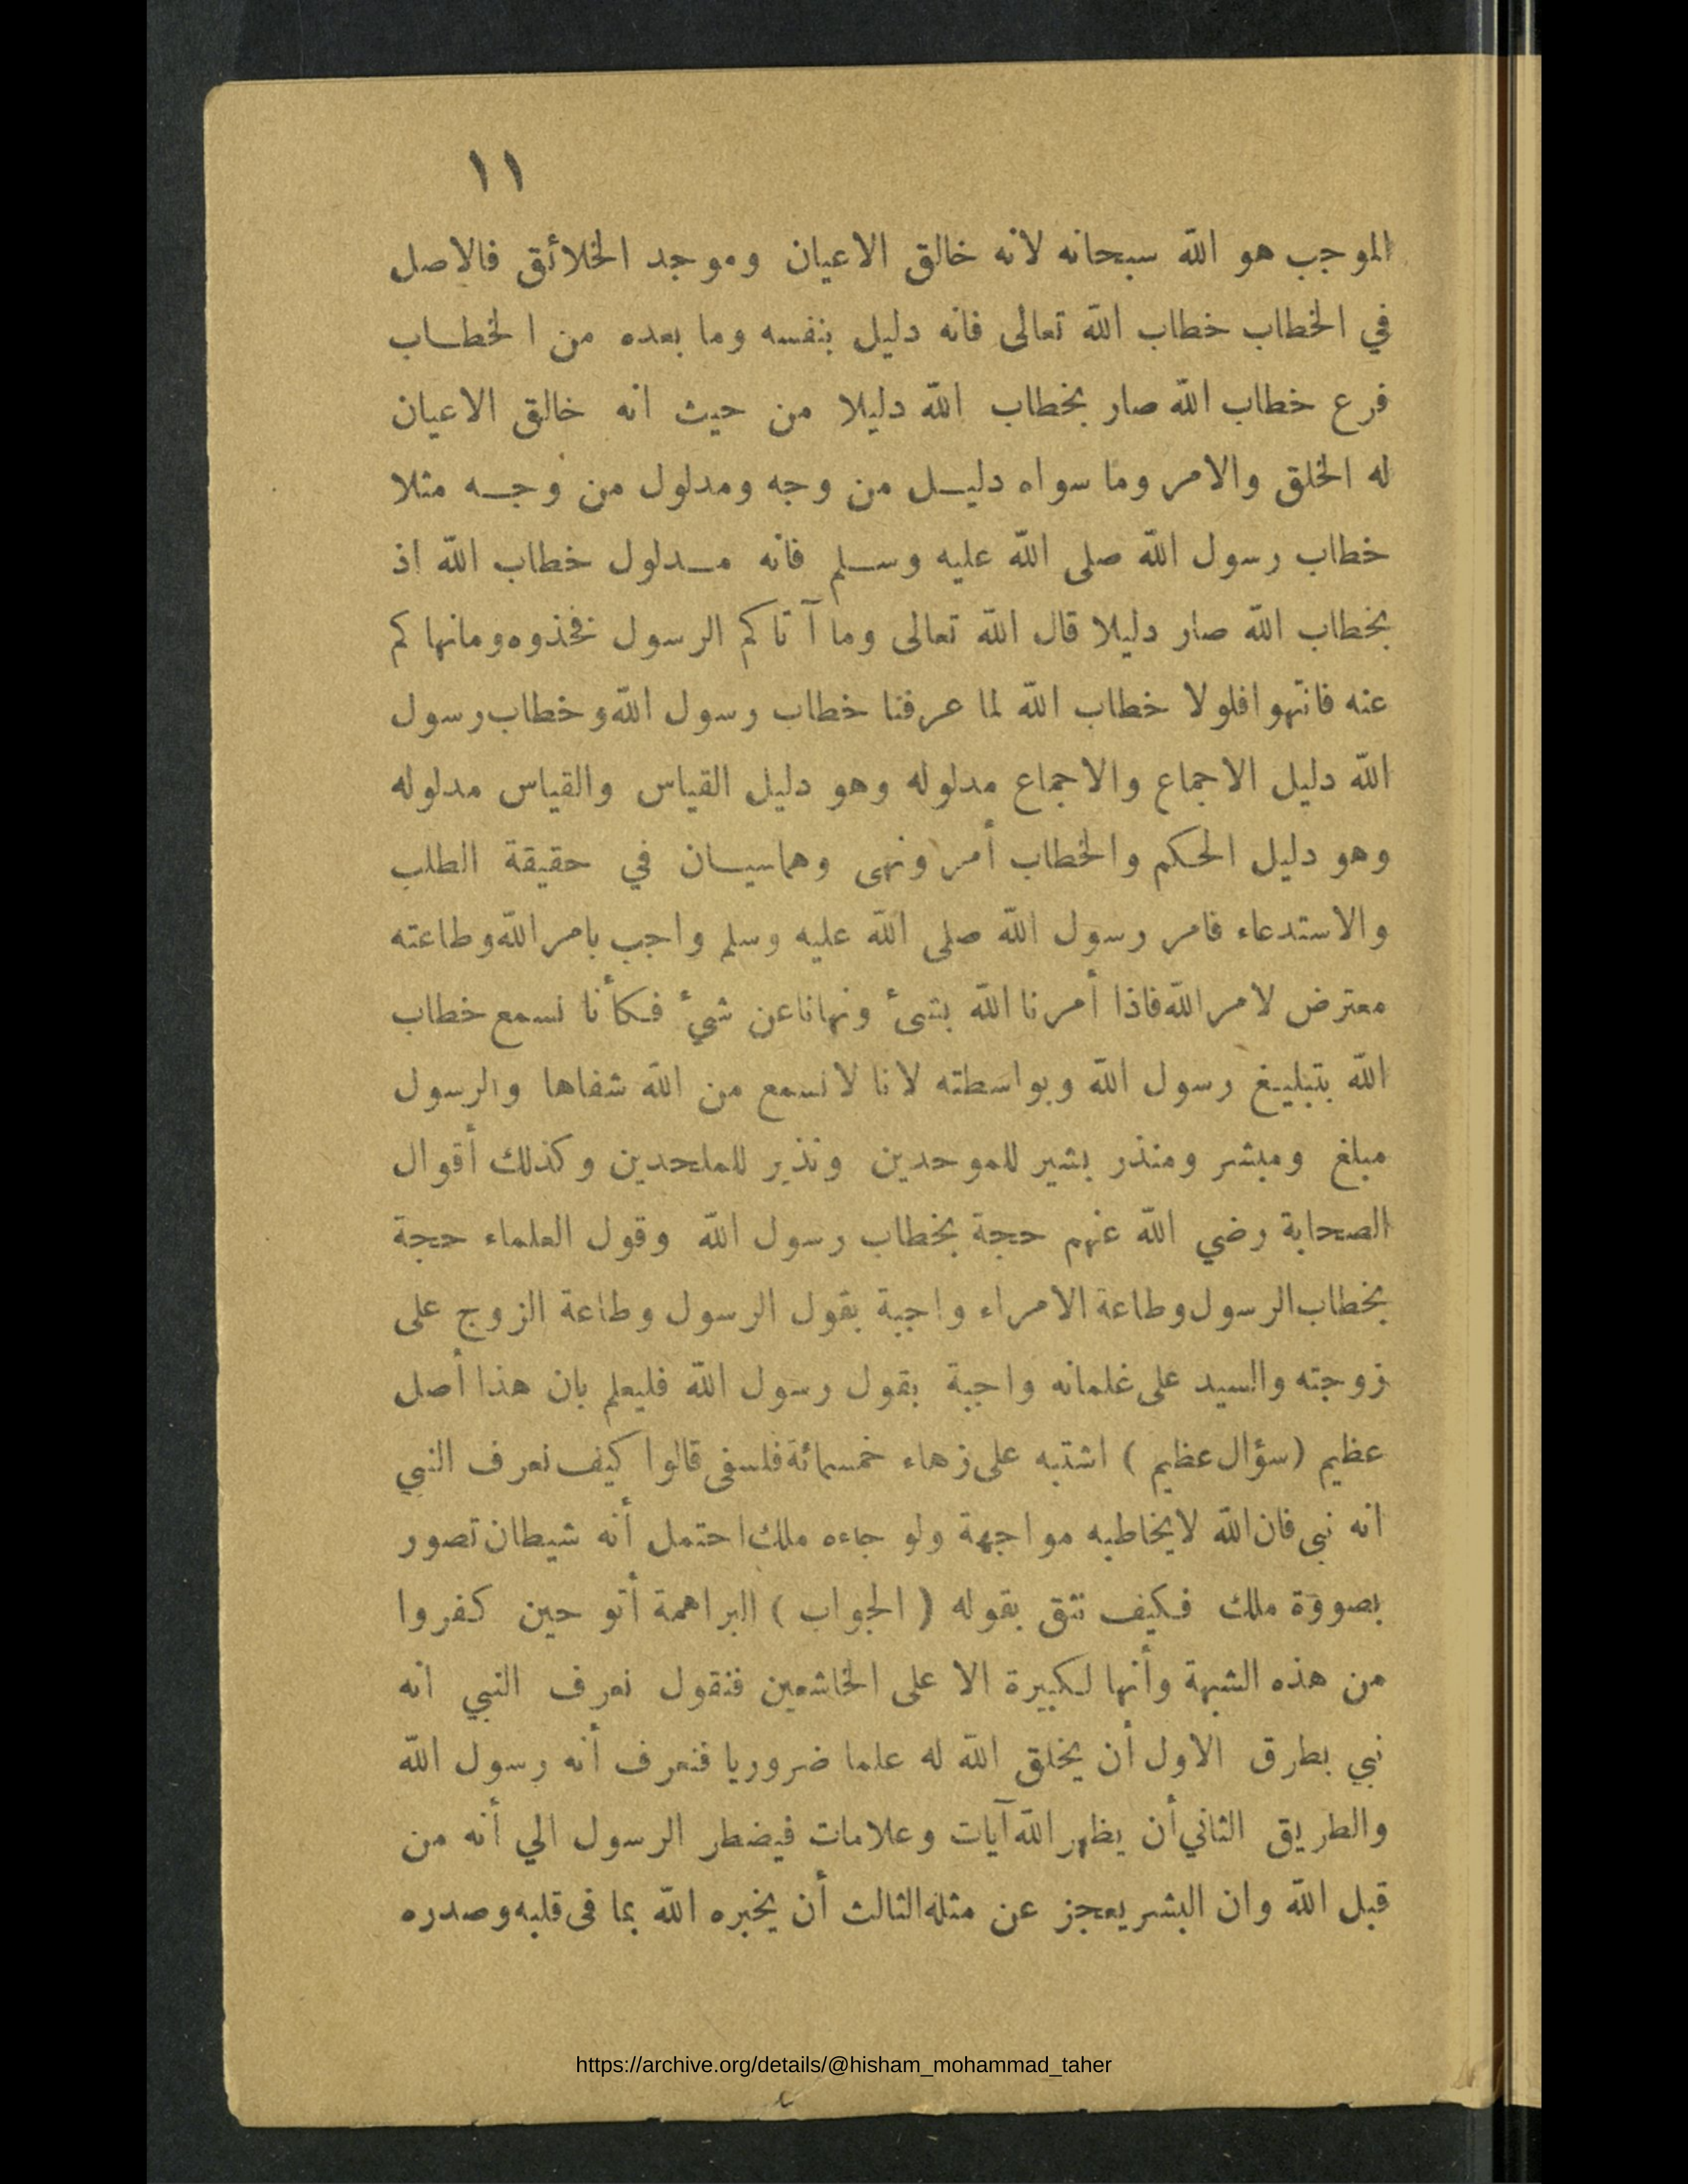 ١١
الموجب هو الله سبحانه لانه خالق الاعيان وموجد الخلائق فالاصل
في الخطاب خطاب الله تعالى فانه دليل بنفسه وما بعده من الخطاب
فرع خطاب الله صار بخطاب الله دليلا من حيث انه خالق الاعيان
له الخلق والامر وما سواه دليل من وجه ومدلول من وجه مثلا
خطاب رسول الله صلى الله عليه وسلم فانه مدلول خطاب الله اذ
بخطاب الله صار دليلا قال الله تعالى وما آتاكم الرسول فخذوه ومانهاكم
عنه فانتهوا فلولا خطاب الله لما عرفنا خطاب رسول الله وخطاب رسول
الله دليل الاجماع والاجماع مدلوله وهو دليل القياس والقياس مدلوله
وهو دليل الحكم والخطاب أمر ونهى وهماسيان في حقيقة الطلب
والاستدعاء فامر رسول الله صلى الله عليه وسلم واجب بامر الله وطاعته
معترض لامر الله فاذا أمرنا الله بشئ ونهاناعن شئ فكأنا نسمع خطاب
الله بتبليغ رسول الله وبواسطته لانا لانسمع من الله شفاها والرسول
مبلغ ومبشر ومنذر بشير للموحدين ونذير للملحدين وكذلك أقوال
الصحابة رضي الله عنهم حجة بخطاب رسول الله وقول العلماء حجة
بخطاب الرسول وطاعة الامراء واجبة بقول الرسول وطاعة الزوج على
زوجته والسيد على غلمانه واجبة بقول رسول الله فليعلم بان هذا أصل
عظيم (سؤال عظيم) اشتبه على زهاء خمسمائة فلسفى قالوا كيف نعرف النبي
انه نبى فان الله لايخاطبه مواجهة ولو جاءه ملك احتمل أنه شيطان تصور
بصووة ملك فكيف نثق بقوله (الجواب) البراهمة أتو حين كفروا
من هذه الشبهة وأنها لكبيرة الا على الخاشعين فنقول نعرف النبي انه
نبي بطرق الاول أن يخلق الله له علما ضروريا فنعرف أنه رسول الله
والطريق الثاني أن يظهر الله آيات وعلامات فيضطر الرسول الي أنه من
قبل الله وان البشر يعجز عن مثله الثالث أن يخبره الله بما فى قلبه وصدره
https://archive.org/details/@hisham_mohammad_taher